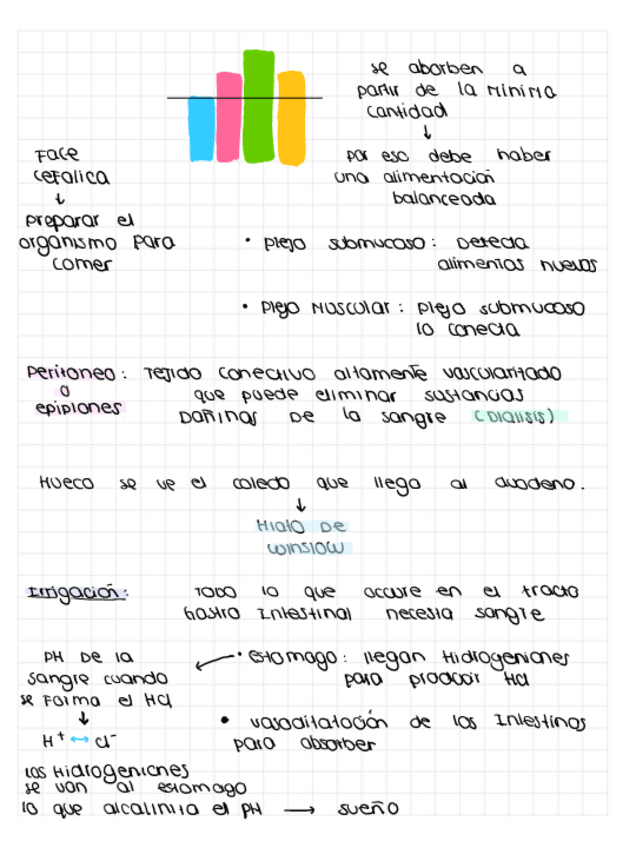 se absorben a
partir de la minima
cantidad
↓
por eso debe haber
una alimentación
balanceada
Face
cefalica
↓
preparar el
organismo para
comer
• Plejo submucoso: Detecta
alimentos nuevos
• Plejo Muscular: plejo submucoso
lo conecta
Peritoneo: Tejido conectivo altamente vascularizado
o
epiplones
que puede eliminar sustancias
Dañinas De la sangre (Dialisis)
Hueco se ve el coledo que llega al duodeno.
↓
Hiato De
Winslow
Irrigación: Todo lo que occure en el tracto
Gastro Intestinal necesita sangre
• estomago: llegan Hidrogeniones
para producir Hcl
PH De la
sangre cuando
se Forma el HCl
↓
H⁺ ↔ cl⁻
• vasoditatación de los Intestinos
para absorber
Los Hidrogeniones
se van al estomago
lo que alcaliniza el pH → sueño